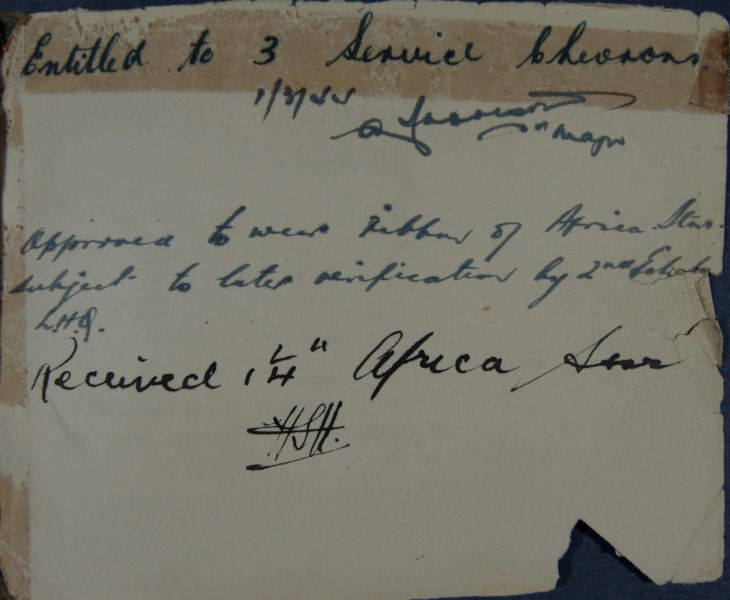 Entitled to 3 Service Chevrons.
1/3/44
Major
Approved to wear Ribbon of Africa Star.
subject to later verification by 2nd Echelon
L.H.Q.
Received 1 1/4" Africa Star
HSH.